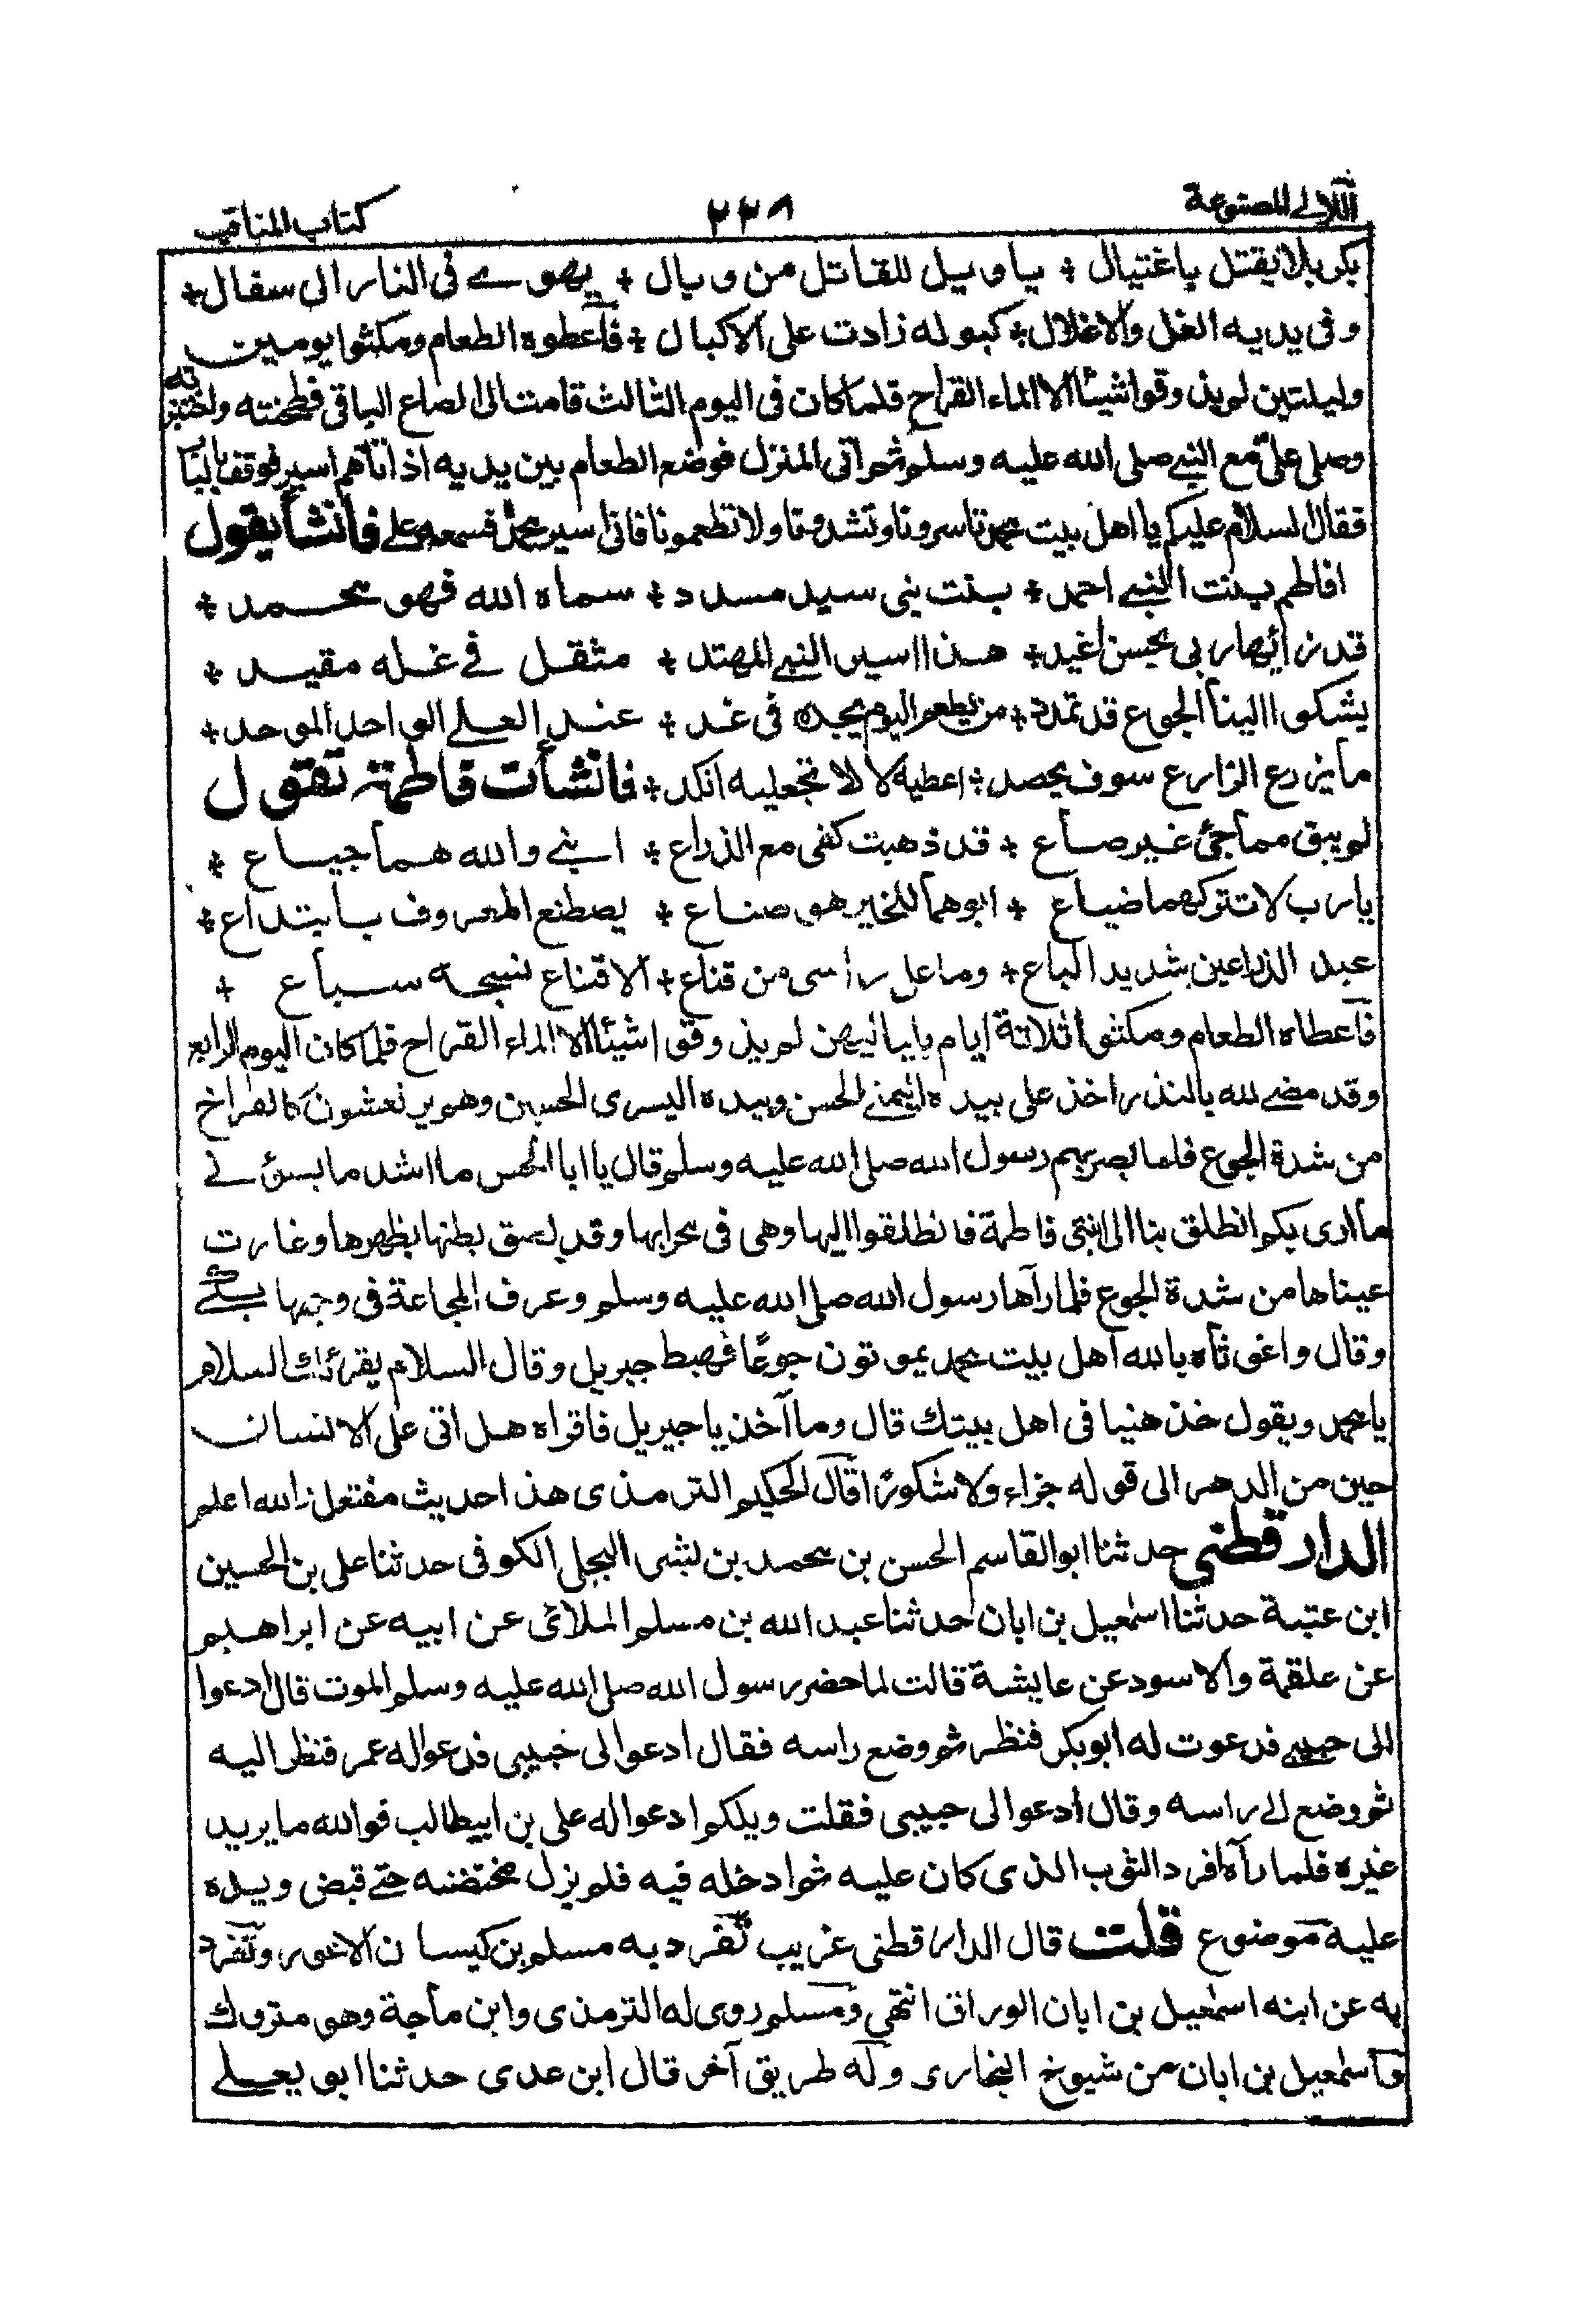 اللآلى المصنوعة
٢٣٨
كتاب المناقب
بكربلا يقتل باغتيال + يا ويل للقاتل من وبال + يهوے فى النار الى سفال +
وفى يديه الغل والاغلال + كبوله زادت على الاكبال + فاعطوه الطعام ومكثوا يومين
وليلتين لم يذوقوا شيئا الا الماء القراح فلما كان فى اليوم الثالث قامت الى الصاع الباقى فطحنته واختبزته
وصلى علىّ مع النبے صلى الله عليه وسلم ثم اتى المنزل فوضع الطعام بين يديه اذ اتاهم اسير فوقف بالباب
فقال السلام عليكم يا اهل بيت محمد تاسروننا وتشدوننا ولا تطعموننا فانى اسير محمد فسمعه على فانشأ يقول
افاطم بنت النبے احمد + بنت نبى سيد مسدد + سماه الله فهو محمد +
قد زانها ربى بحسن اغيد + هذا اسير النبے المهتد + مثقل فے غله مقيد +
يشكوا الينا الجوع قد تمدد + من يطعم اليوم يجده فى غد + عند العلے الواحد الموحد +
ما يزرع الزارع سوف يحصد + اعطيه لا لا تجعليه انكد + فانشأت فاطمة تقول
لم يبق مما جئ غير صاع + قد ذهبت كفى مع الذراع + ابنے والله هما جياع +
يا رب لا تتركهما ضياع + ابوهما للخير هو صناع + يصطنع المعروف بابتداع +
عبد الذراعين شديد الباع + وما على راسى من قناع + الا قناع نسجه سباع +
فاعطاه الطعام ومكثوا ثلاثة ايام بلياليهن لم يذوقوا شيئا الا الماء القراح فلما كان اليوم الرابع
وقد مضے لله بالنذر اخذ على بيده اليمنے الحسن وبيده اليسرى الحسين وهو يرتعشون كالفراخ
من شدة الجوع فلما بصر بهم رسول الله صلى الله عليه وسلم قال يا ابا الحسن ما اشد ما يسؤ نے
ما ارى بكم انطلق بنا الى ابنتى فاطمة فانطلقوا اليها وهى فى محرابها وقد لصق بطنها بظهرها وغارت
عيناها من شدة الجوع فلما رآها رسول الله صلى الله عليه وسلم وعرف المجاعة فى وجهها بكے
وقال واغوثاه يا لله اهل بيت محمد يموتون جوعًا فهبط جبريل وقال السلام يقرئك السلام
يا محمد ويقول خذ هنيا فى اهل بيتك قال وما آخذ يا جبريل فاقراه هل اتى على الانسان
حين من الدهر الى قوله جزاء ولا شكورًا قال الحكيم الترمذى هذا حديث مفتعل والله اعلم
الدارقطنى حدثنا ابو القاسم الحسن بن محمد بن بشر البجلى الكوفى حدثنا على بن الحسين
ابن عتبة حدثنا اسمعيل بن ابان حدثنا عبد الله بن مسلم الملائى عن ابيه عن ابراهيم
عن علقمة والاسود عن عايشة قالت لما حضر رسول الله صلى الله عليه وسلم الموت قال ادعوا
الى حبيبے فدعوت له ابو بكر فنظر ثم وضع راسه فقال ادعوا لى حبيبى فدعوا له عمر فنظر اليه
ثم وضع لے راسه وقال ادعوا لى حبيبى فقلت ويلكم ادعوا له على بن ابيطالب فوالله ما يريد
غيره فلما رآه افرد الثوب الذى كان عليه ثم ادخله فيه فلم يزل محتضنه حتے قبض ويده
عليه موضوع قلت قال الدارقطنى غريب تفرد به مسلم بن كيسان الاعور وتفرد
به عن ابنه اسمعيل بن ابان الوراق انتهى ومسلم روى له الترمذى وابن ماجة وهو متروك
واسمعيل بن ابان من شيوخ البخارى وله طريق آخر قال ابن عدى حدثنا ابو يعلے